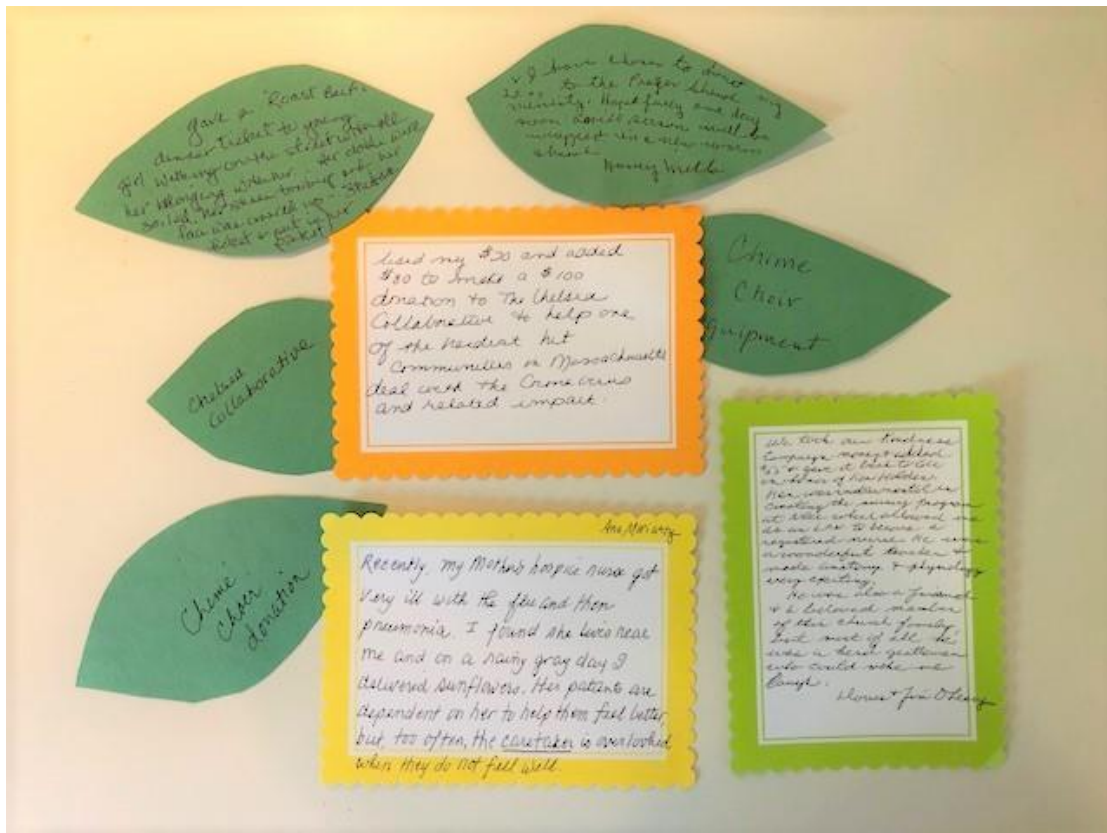 gave a "Roast Beef"
dinner ticket to young
girl walking on the street
her belongings with her. Her clothes were
soiled, her
face was covered up
ticket & put in
pocket
I have chosen to
to the Prayer Shawl
ministry. Hopefully one day
soon
wrapped in a new warm
shawl
Nancy
used my $20 and added
$80 to make a $100
donation to The Chelsea
Collaborative to help one
of the hardest hit
Communities in Massachusetts
deal with the Corona virus
and related impact.
Chime
Choir
equipment
Chelsea
Collaborative
Chime
Choir
donation
Recently, my Mother's hospice nurse got
very ill with the flu and then
pneumonia. I found she lives near
me and on a rainy gray day I
delivered sunflowers. Her patients are
dependent on her to help them feel better,
but, too often, the caretaker is overlooked
when they do not fell well.
We took our Kindness
Campaign money & added
& gave it back to
in honor of Ken Holden.
Ken was instrumental in
creating the nursing program
at which allowed me
as an LPN to become a
registered nurse. He was
a wonderful teacher &
made anatomy & physiology
very exciting.
He was also a friend
& a beloved member
of this church family
but most of all he
was a dear gentleman
who could make me
laugh.
& Jim O'Leary